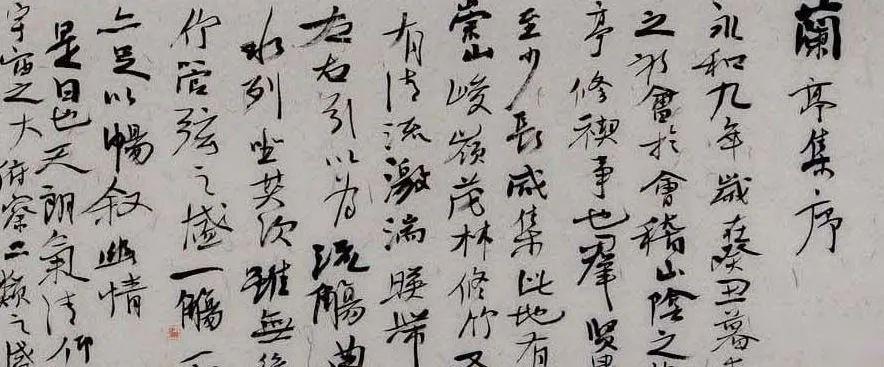 蘭亭集序
永和九年歲在癸丑暮
之初會於會稽山陰之
亭修禊事也羣賢
至少長咸集此地有
崇山峻嶺茂林修竹又
有清流激湍暎帶
左右引以為流觴曲
水列坐其次雖無
竹管弦之盛一觴一
亦足以暢叙幽情
是日也天朗氣清仰
宇宙之大俯察品類之盛